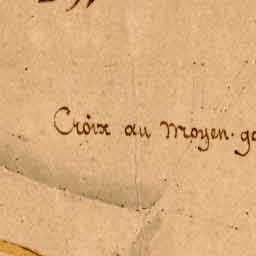 Croix au moyen. ga